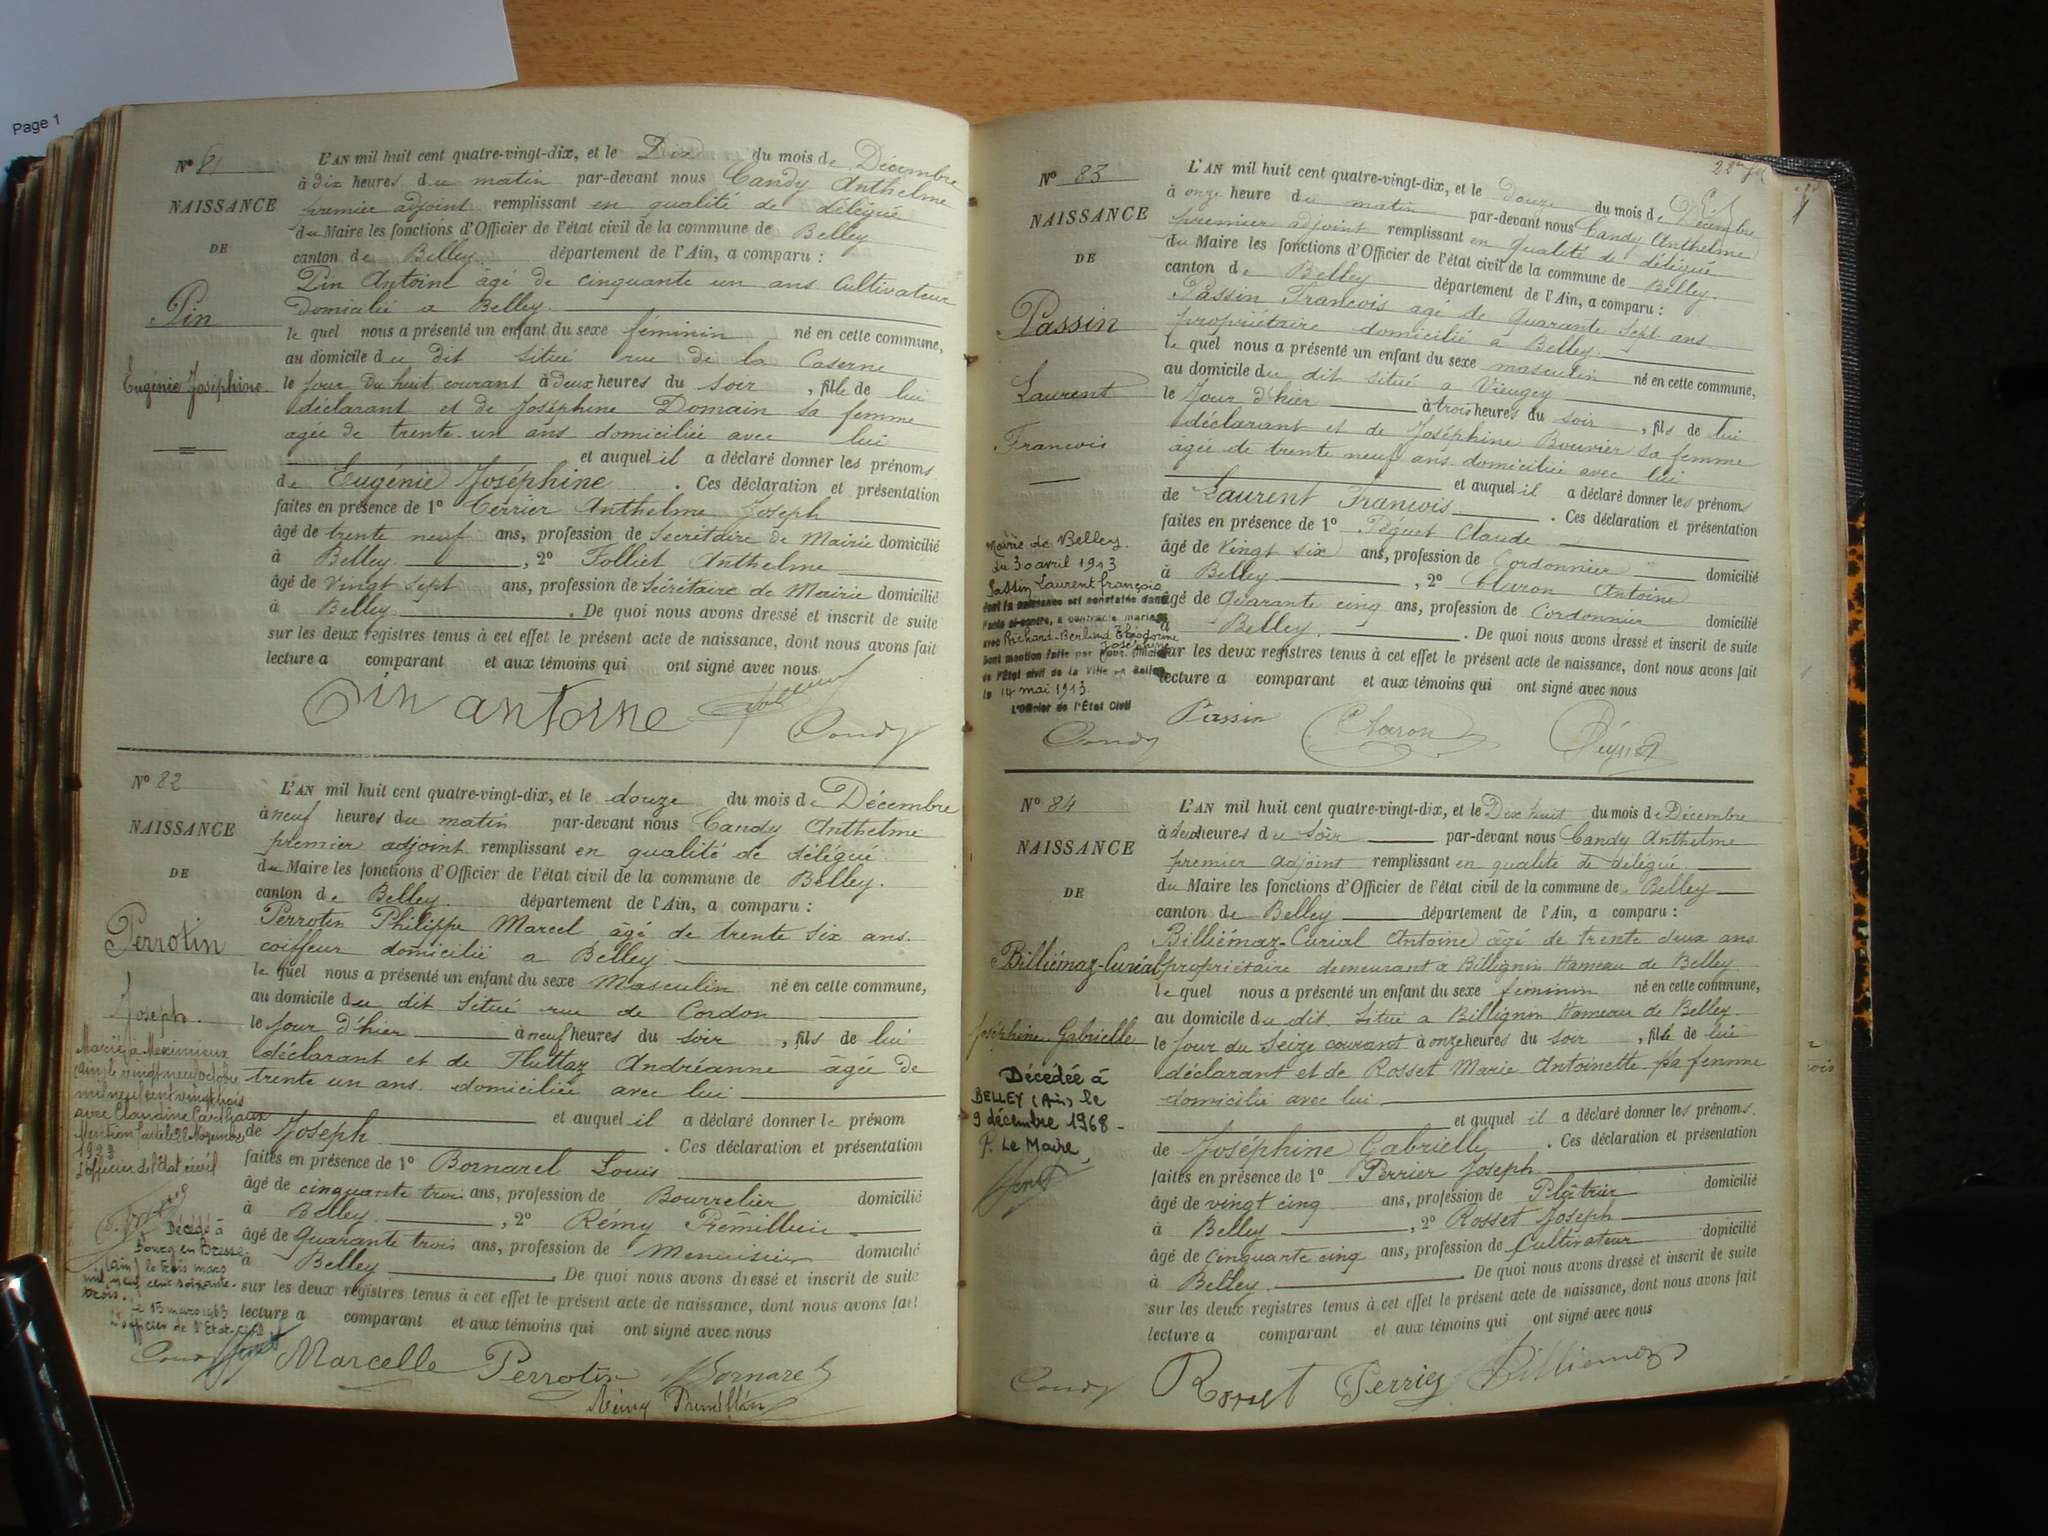 Page 1
N° 81
NAISSANCE
DE
Pin
Eugénie Joséphine
L'AN mil huit cent quatre-vingt-dix, et le Dix du mois de Décembre
à dix heures du matin par-devant nous Candy Anthelme
premier adjoint remplissant en qualité de délégué
du Maire les fonctions d'Officier de l'état civil de la commune de Belley
canton de Belley département de l'Ain, a comparu :
Pin Antoine âgé de cinquante un ans Cultivateur
domicilié a Belley
le quel nous a présenté un enfant du sexe féminin né en cette commune,
au domicile du dit situé rue de la Caserne
le jour du huit courant à deux heures du soir , fille de lui
déclarant et de Joséphine Domain sa femme
agée de trente-un ans domiciliée avec lui
et auquel il a déclaré donner les prénoms
de Eugénie Joséphine . Ces déclaration et présentation
faites en présence de 1° Anthelme Joseph
âgé de trente neuf ans, profession de Secrétaire de Mairie domicilié
à Belley , 2° Folliet Anthelme
âgé de vingt sept ans, profession de Sécrétaire de Mairie domicilié
à Belley . De quoi nous avons dressé et inscrit de suite
sur les deux registres tenus à cet effet le présent acte de naissance, dont nous avons fait
lecture a comparant et aux témoins qui ont signé avec nous
Pin antoine
Candy
N° 82
NAISSANCE
DE
Perrotin
Joseph
Marié à Meximieux
(Ain) le vingt neuf octobre
mil neuf cent vingt trois
avec Claudine
Mention faite le 22 Novembre
1923
L'officier de l'état civil
Décédé à
Bourg en Bresse
(Ain) le trois mars
mil neuf cent soixante-
trois.
Le 15 mars 1963
L'officier de l'Etat-civil
L'AN mil huit cent quatre-vingt-dix, et le douze du mois de Décembre
à neuf heures du matin par-devant nous Candy Anthelme
premier adjoint remplissant en qualité de délégué
du Maire les fonctions d'Officier de l'état civil de la commune de Belley.
canton de Belley département de l'Ain, a comparu :
Perrotin Philippe Marcel âgé de trente six ans
coiffeur domicilié a Belley
le quel nous a présenté un enfant du sexe Masculin né en cette commune,
au domicile du dit situé rue de Cordon
le jour d'hier à neuf heures du soir , fils de lui
déclarant et de Andréanne âgée de
trente un ans domiciliée avec lui
et auquel il a déclaré donner le prénom
de Joseph . Ces déclaration et présentation
faites en présence de 1° Bornarel Louis
âgé de cinquante trois ans, profession de Bourrelier domicilié
à Belley , 2° Rémy
âgé de quarante trois ans, profession de Menuisier domicilié
à Belley . De quoi nous avons dressé et inscrit de suite
sur les deux registres tenus à cet effet le présent acte de naissance, dont nous avons fait
lecture a comparant et aux témoins qui ont signé avec nous
Candy Marcelle Perrotin Bornarel
Rémy
N° 83
NAISSANCE
DE
Passin
Laurent
Francois
Mairie de Belley.
du 30 avril 1913
Passin Laurent françois
dont la naissance est constatée dans
l'acte ci-contre, a contracté mariage
avec Richard-Berland Théodorine
Joséphine
Dont mention faite par nous, Officier
de l'État civil de la Ville de Belley
le 14 mai 1913.
L'Officier de l'État Civil
L'AN mil huit cent quatre-vingt-dix, et le douze du mois de Décembre
à onze heure du matin par-devant nous Candy Anthelme
premier adjoint remplissant en qualité de délégué
du Maire les fonctions d'Officier de l'état civil de la commune de Belley.
canton de Belley département de l'Ain, a comparu :
Passin Francois agé de quarante sept ans
propriétaire domicilié a Belley.
le quel nous a présenté un enfant du sexe masculin né en cette commune,
au domicile du dit situé a
le jour d'hier à trois heures du soir , fils de lui
déclarant et de Joséphine Bouvier sa femme
âgée de trente neuf ans domiciliée avec lui
et auquel il a déclaré donner les prénoms
de Laurent Francois . Ces déclaration et présentation
faites en présence de 1° Claude
âgé de vingt six ans, profession de Cordonnier domicilié
à Belley , 2° Claron Antoine
âgé de quarante cinq ans, profession de Cordonnier domicilié
à Belley. . De quoi nous avons dressé et inscrit de suite
sur les deux registres tenus à cet effet le présent acte de naissance, dont nous avons fait
lecture a comparant et aux témoins qui ont signé avec nous
Candy Passin Claron
N° 84
NAISSANCE
DE
Billiémaz-Curial
Joséphine Gabrielle
Décédée à
BELLEY (Ain) le
9 décembre 1968 -
P. Le Maire,
L'AN mil huit cent quatre-vingt-dix, et le Dix huit du mois de Décembre
à deux heures du soir par-devant nous Candy Anthelme
premier adjoint remplissant en qualité de délégué
du Maire les fonctions d'Officier de l'état civil de la commune de Belley
canton de Belley département de l'Ain, a comparu :
Billiémaz-Curial Antoine âgé de trente deux ans
propriétaire demeurant à Billignin Hameau de Belley
le quel nous a présenté un enfant du sexe feminin né en cette commune,
au domicile du dit. Situé a Billignin Hameau de Belley.
le jour du Seize courant à onze heures du soir , fille de lui
déclarant et de Rosset Marie Antoinette sa femme
domicilié avec lui
et auquel il a déclaré donner les prénoms.
de Joséphine Gabrielle . Ces déclaration et présentation
faites en présence de 1° Perrier Joseph
âgé de vingt cinq ans, profession de Plâtrier domicilié
à Belley , 2° Rosset Joseph
âgé de cinquante cinq ans, profession de Cultivateur domicilié
à Belley . De quoi nous avons dressé et inscrit de suite
sur les deux registres tenus à cet effet le présent acte de naissance, dont nous avons fait
lecture a comparant et aux témoins qui ont signé avec nous
Candy Rosset Perrier Billiemaz